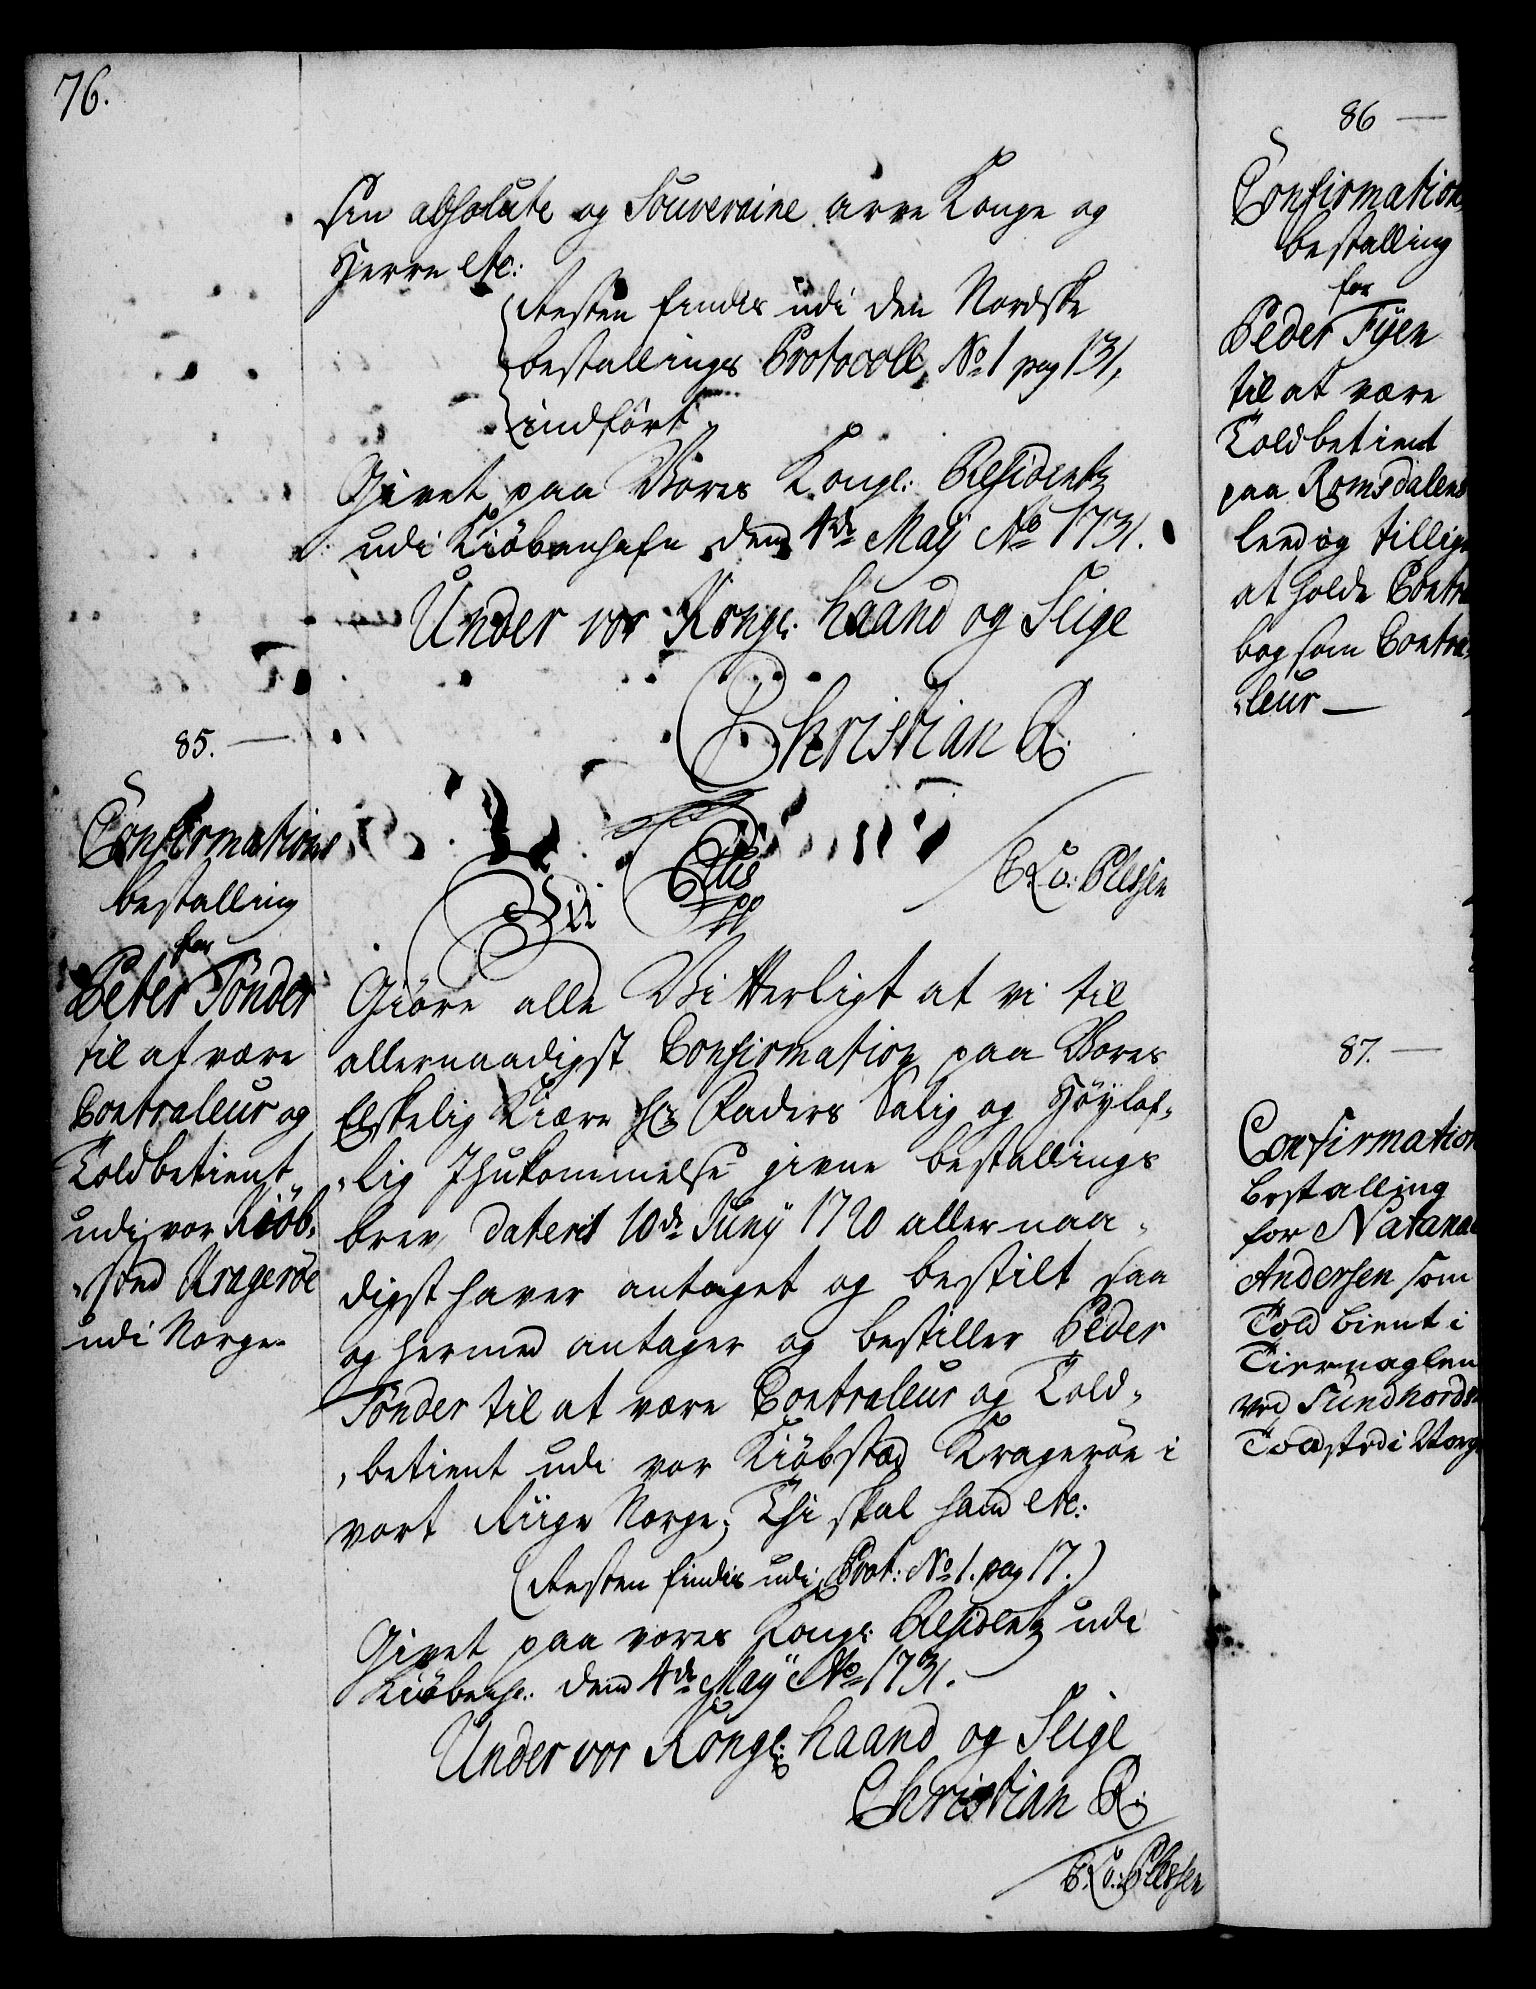 76.
sin absolute og Souveraine arve Konge og
Herre etc:
Resten findes udi den Nordske
bestallings Protocoll, No. 1 pag 131,
indført.
Givet paa Vores Kongl: Residentz
udi Kiöbenhafn den 4de Maÿ Ao 1731.
Under vor Kongl: haand og Seigl
Christian R.
C. A. v: Plessen
85.
Confirmations
bestalling
for
Peter Tönder
til at være
Contraleur og
Toldbetient
udi vor Kiöb-
sted Kragerøe
udi Norge.
Vii C 6tus
pp
Giöre alle Vitterligt at vi til
allernaadigst Confirmation paa Vores
Elskelig Kiære Hr. Faders Salig og Höÿlof-
lig Ihukommelse givne bestallings
brev dateret 10de Junÿ 1720 allernaa-
digst haver antaget og bestilt saa
og hermed antager og bestiller Peder
Tönder til at være Contraleur og Told-
betient udi vor Kiöbsted Kragerøe i
vort Riige Norge; Thi skal hand etc:
(Resten findes udi Prot: No 1. pag 17.)
Givet paa vores Kongl: Residentz udi
Kiöbenh: dend 4de Maÿ Ao 1731.
Under vor Kongl: haand og Seigl
Christian R.
C. A. v: Plessen
86
Confirmations
bestalling
for
Peder Fÿen
til at være
Toldbetient
paa Romsdalens
leed og tillige
at holde Contra
bog som Contra-
leur
87.
Confirmation
bestalling
for Natana
Andersen som
Told bient i
Tiernaglen
ved Sundhords
Toldsted i Norg